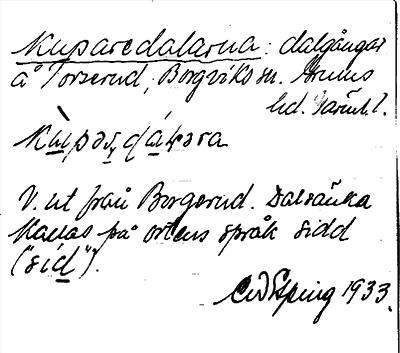 Kuparedalarna: dalgångar
å Torserud, Borgviks sn. Grums
hd. Värml.
Kùpər,dáɽəra
V. ut från Borgerud. Dalsänka
kallas på ortens språk sidd
("sid").
CW Esping 1933.